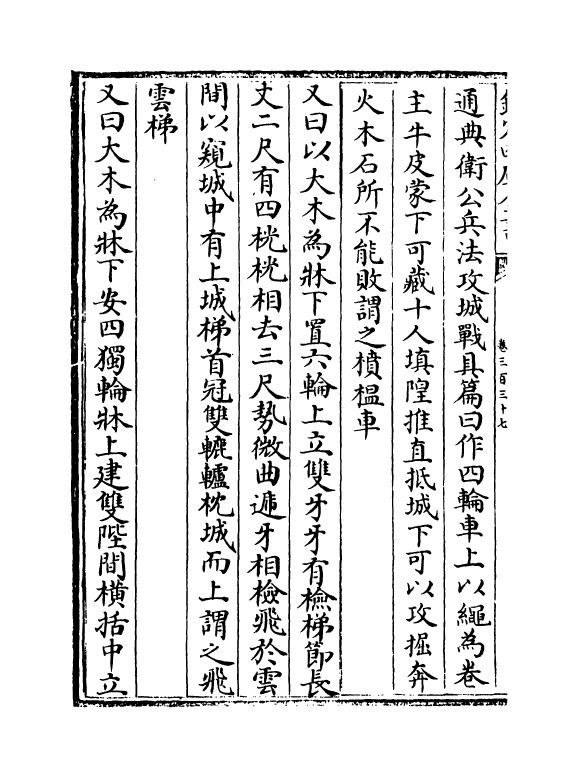 卷三百三十七
通典衛公兵法攻城戰具篇曰作四輪車上以繩為卷
主牛皮蒙下可藏十人填隍推直抵城下可以攻掘奔
火木石所不能敗謂之轒榅車
又曰以大木為牀下置六輪上立雙牙牙有檢梯節長
丈二尺有四桄桄相去三尺勢微曲遞牙相檢飛於雲
間以窺城中有上城梯首冠雙轆轤枕城而上謂之飛
雲梯
又曰大木為牀下安四獨輪牀上建雙陛間橫括中立